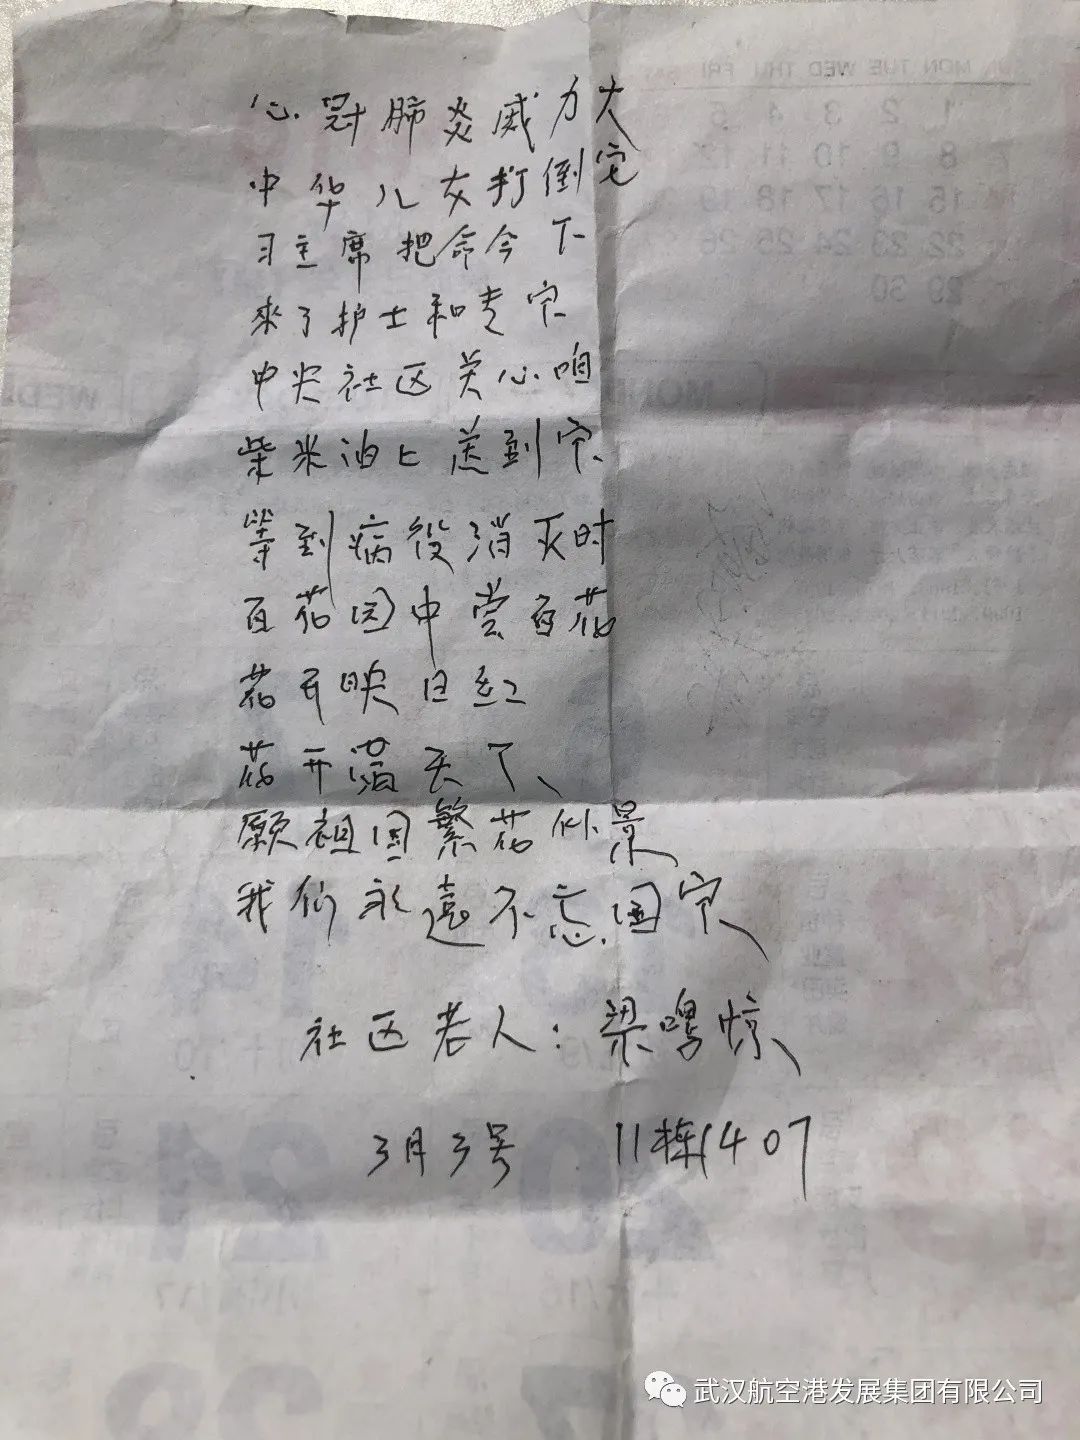 心冠肺炎威力大
中华儿女打倒它
习主席把命令下
來了护士和专家
中央社区关心咱
柴米油七送到家
等到病役消灭时
百花园中赏百花
花开映日红
花开满天下、
愿祖国繁花似景
我们永遠不忘国家
社区老人：梁鸣惊
3月3号 11栋1407
SUN MON TUE WED THU FRI SAT
1 2 3 4 5
8 9 10 11 12
15 16 17 18 19
22 23 24 25 26
29 30
MON
WED
14
20
21
武汉航空港发展集团有限公司